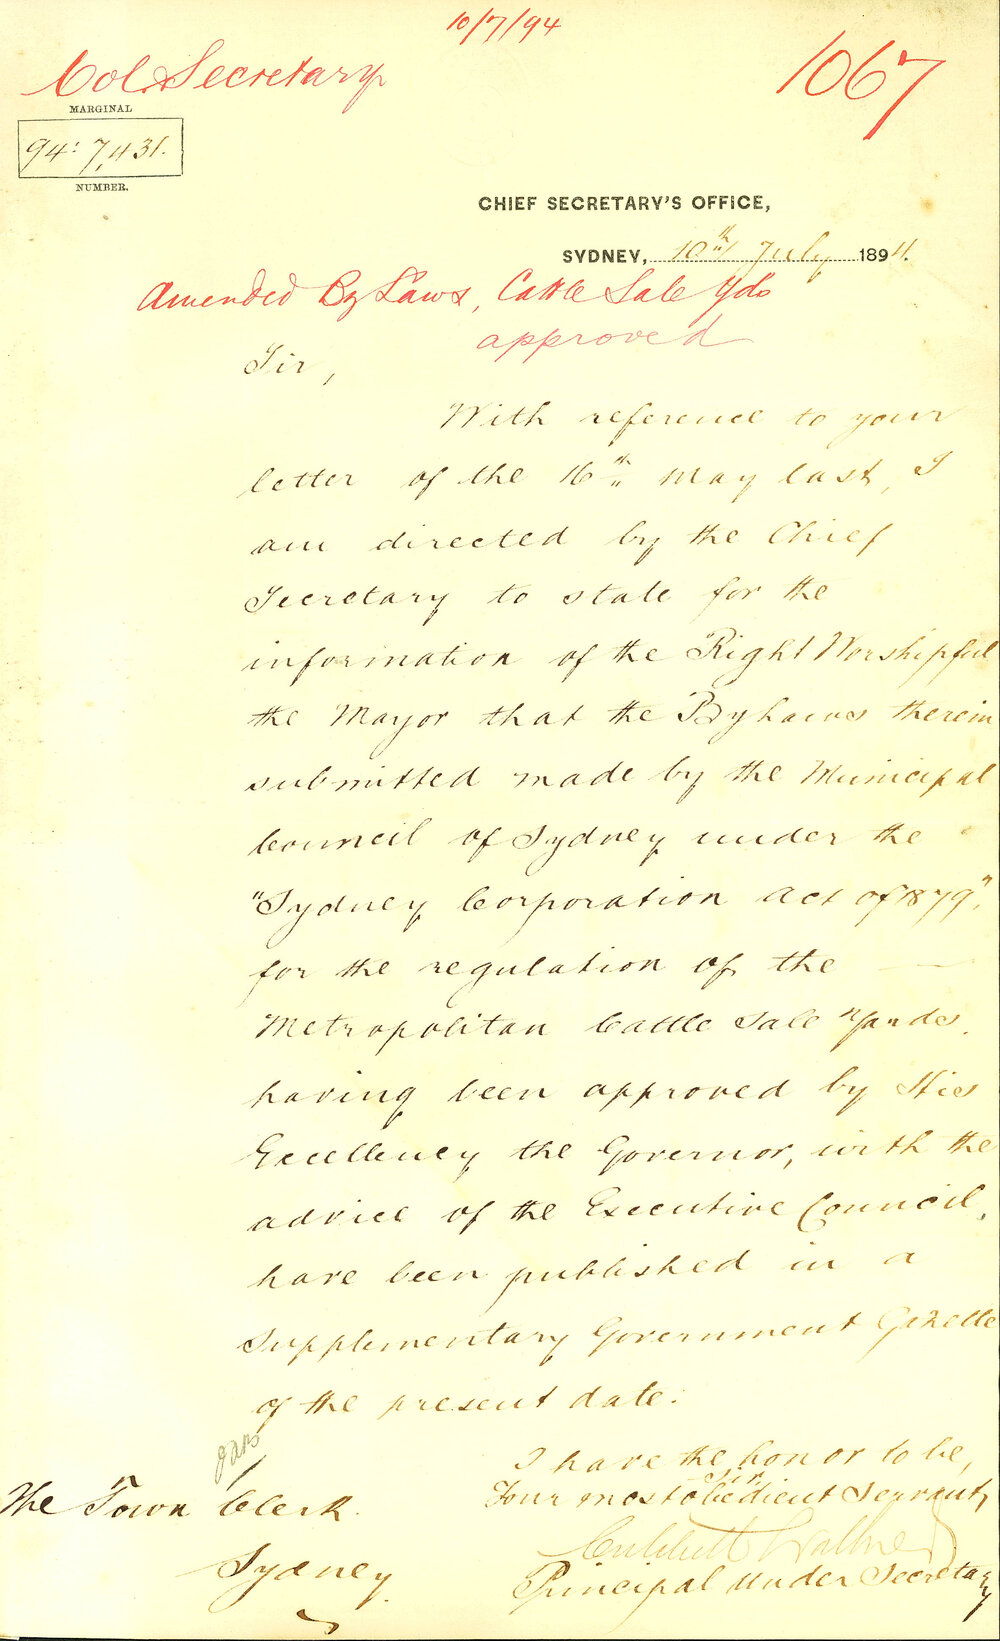 10/7/94
Col. Secretary
1067
MARGINAL
94: 7,431.
NUMBER.
CHIEF SECRETARY'S OFFICE,
SYDNEY, 10th July 1894.
Amended By Laws, Cattle Sale Yds
approved
Sir,
With reference to your
letter of the 16th May last, I
am directed by the Chief
Secretary to state for the
information of the Right Worshipful
the Mayor that the By Laws therein
submitted made by the Municipal
Council of Sydney under the
"Sydney Corporation Act of 1879",
for the regulation of the
Metropolitan Cattle Sale Yards,
having been approved by His
Excellency the Governor, with the
advice of the Executive Council,
have been published in a
Supplementary Government Gazette
of the present date.
I have the honor to be,
Sir,
Your most obedient Servant,
Critchett Walker
Principal Under Secretary
The Town Clerk
Sydney.